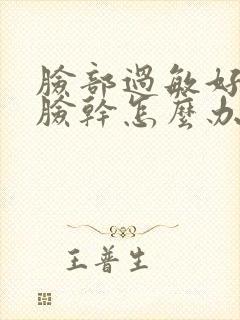 臉部過敏好
臉幹怎麼办
王普生